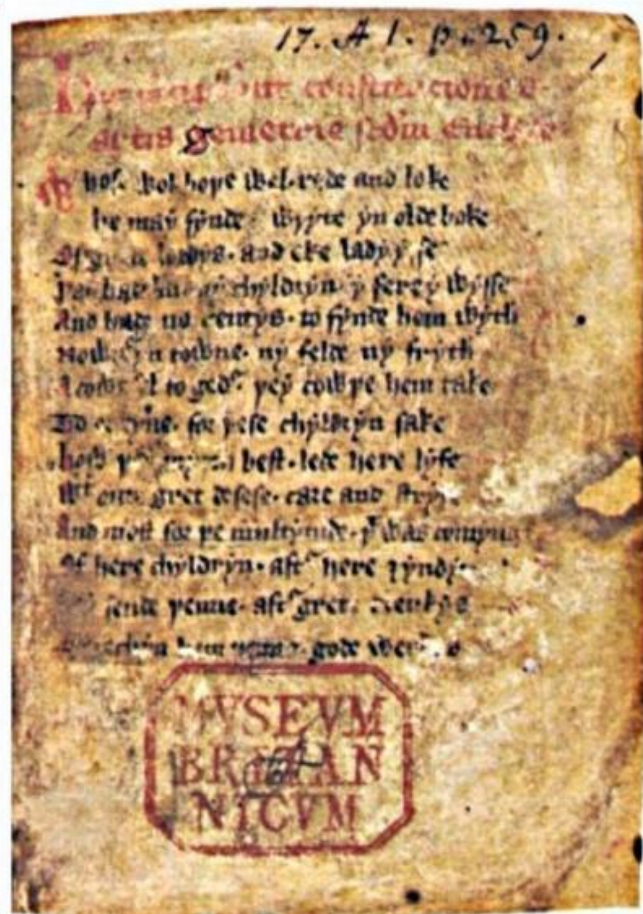 17. A 1. p. 259.
constitucione
artis gemetrie
wol bope wel rede and loke
he may fynde wryte yn olde boke
Of grete lordys and eke ladyysse
hade mony chyldryn y fere y wysse
And hade no rentys to fynde hem wyth
Nowther yn towne ny felde ny fryth
þey cowþe hem take
To ordeyne for þese chyldryn sake
How þey best lede here lyfe
gret desese care and stryfe
And most for þe multytude þt was comynge
Of here chyldryn aft here
sende þenne aft grete clerkys
techyn hem þenne gode werkys
MVSEVM
BRITAN
NICVM